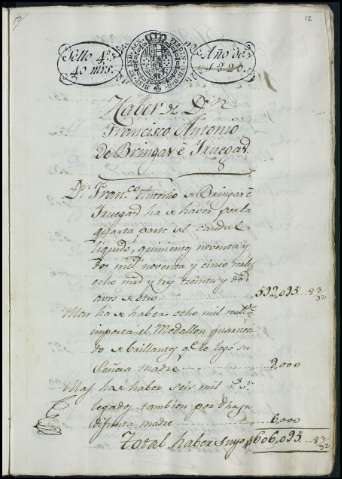 12
Sello 4º
40 mrs.
Año de
1820.
Haber de Dn
Francisco Antonio
de Bringas è
Dn. Franco. Antonio de Bringas è
ha de haber por la
quarta parte del caudal
liquido, quinientos noventa y
dos mil noventa y cinco
ocho mrs y tres treinta y dos
avos de otro 592,095.. 8 3/32
Mas ha de haber ocho mil
importa el Medallon guarneci
do de brillantes qe. le legó su
Señora madre 8,000
Mas ha de haber seis mil ps.
legados tambien por dicha
difunta madre 6,000
Total haber suyo $606,095.. 8 3/32